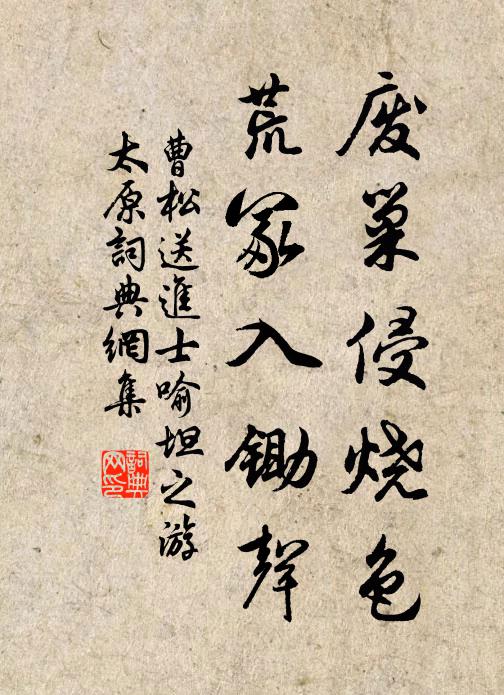 废巢侵烧色
荒冢入锄声
曹松送進士喻坦之游
太原詞典網集
詞典网印